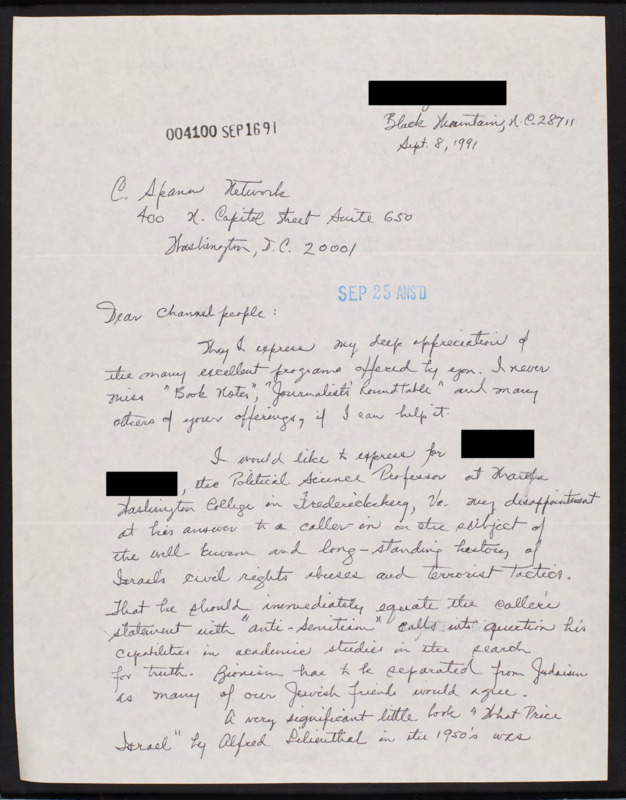 Black Mountain, N.C. 28711
004100 SEP 16 91
Sept. 8, 1991
C. Spann Network
400 N. Capitol Street Suite 650
Washington, D.C. 20001
SEP 25 ANS'D
Dear Channel people:
May I express my deep appreciation of
the many excellent programs offered by you. I never
miss "Book Notes", "Journalist's Roundtable" and many
others of your offerings, if I can help it.
I would like to express for
, the Political Science Professor at Martha
Washington College in Fredericksburg, Va. my disappointment
at his answer to a caller-in on the subject of
the well-known and long-standing history of
Israel's civil rights abuses and terrorist tactics.
That he should immediately equate the caller's
statement with "anti-Semitism" calls into question his
capabilities in academic studies in the search
for truth. Zionism has to be separated from Judaism
as many of our Jewish friends would agree.
A very significant little book "What Price
Israel" by Alfred Lilienthal in the 1950's was